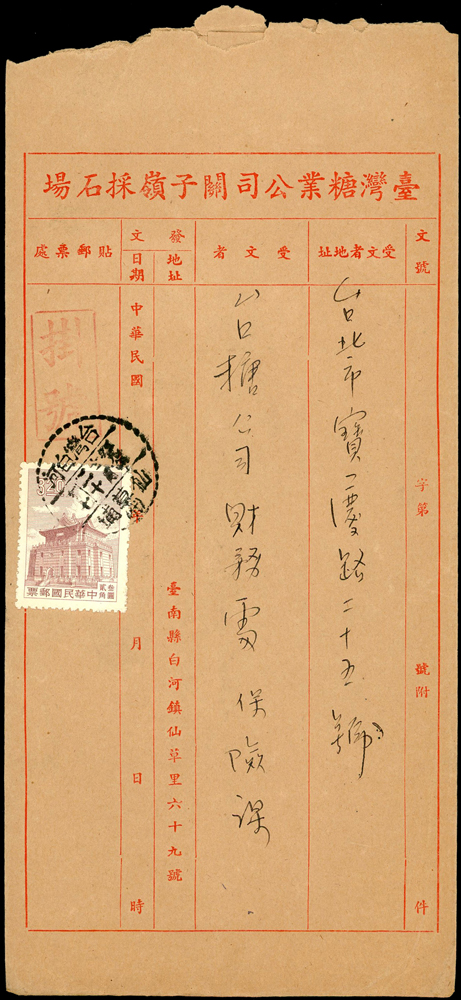 臺灣糖業公司關子嶺採石場
文號
字第
號附
件
受文者地址
台北市寶慶路二十五號
受文者
台糖公司財務處保險課
發文
地址
臺南縣白河鎮仙草里六十九號
日期
中華民國
年
月
日
時
貼郵票處
掛號
台灣白河
仙草埔
3.20
叁圓貳角
中華民國郵票